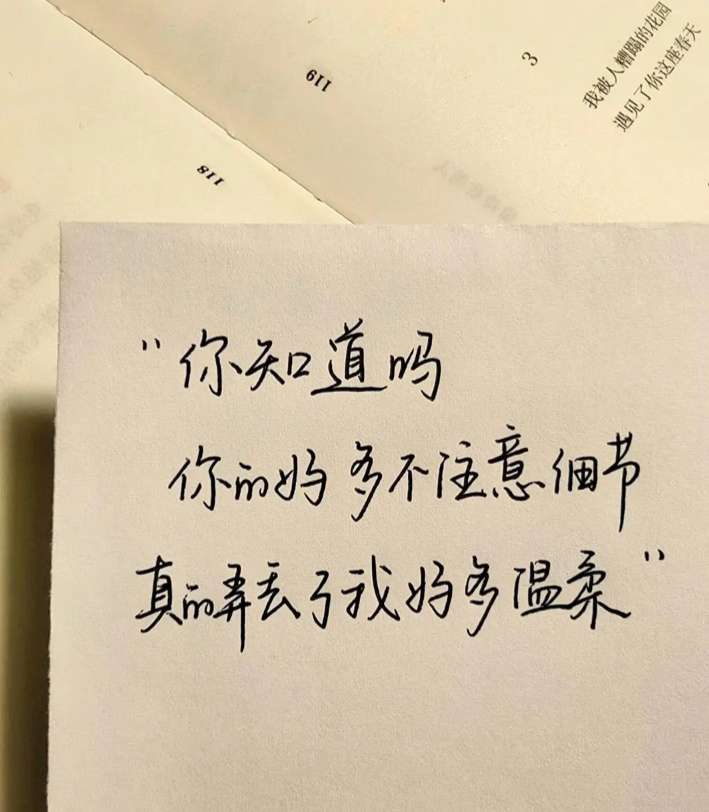 119
3
我被人糟蹋的花园
遇见了你这座春天
118
“你知道吗
你的好多不注意细节
真的弄丢了我好多温柔”